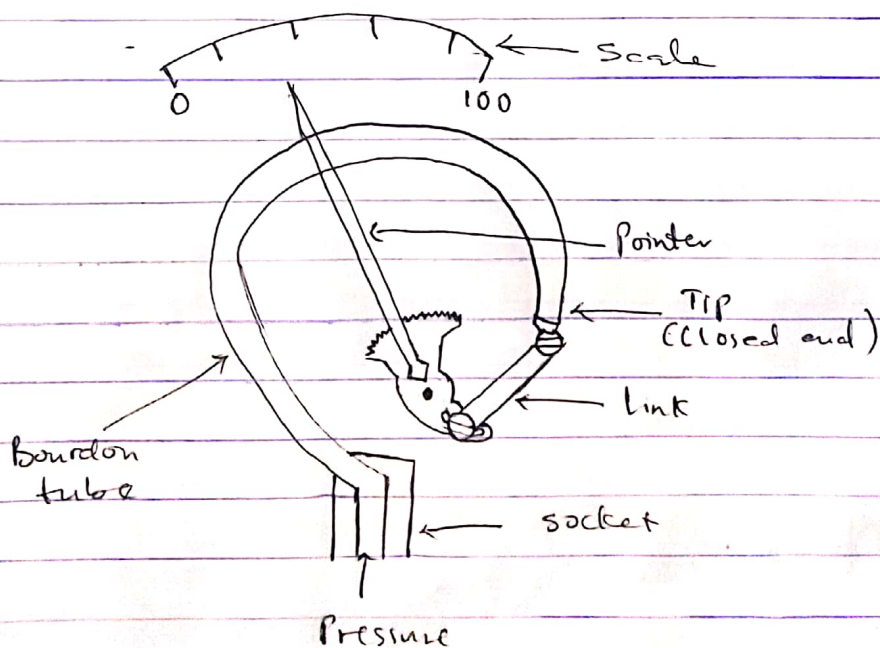 Scale
0
100
Pointer
Tip
(Closed end)
Link
Bourdon
tube
socket
Pressure